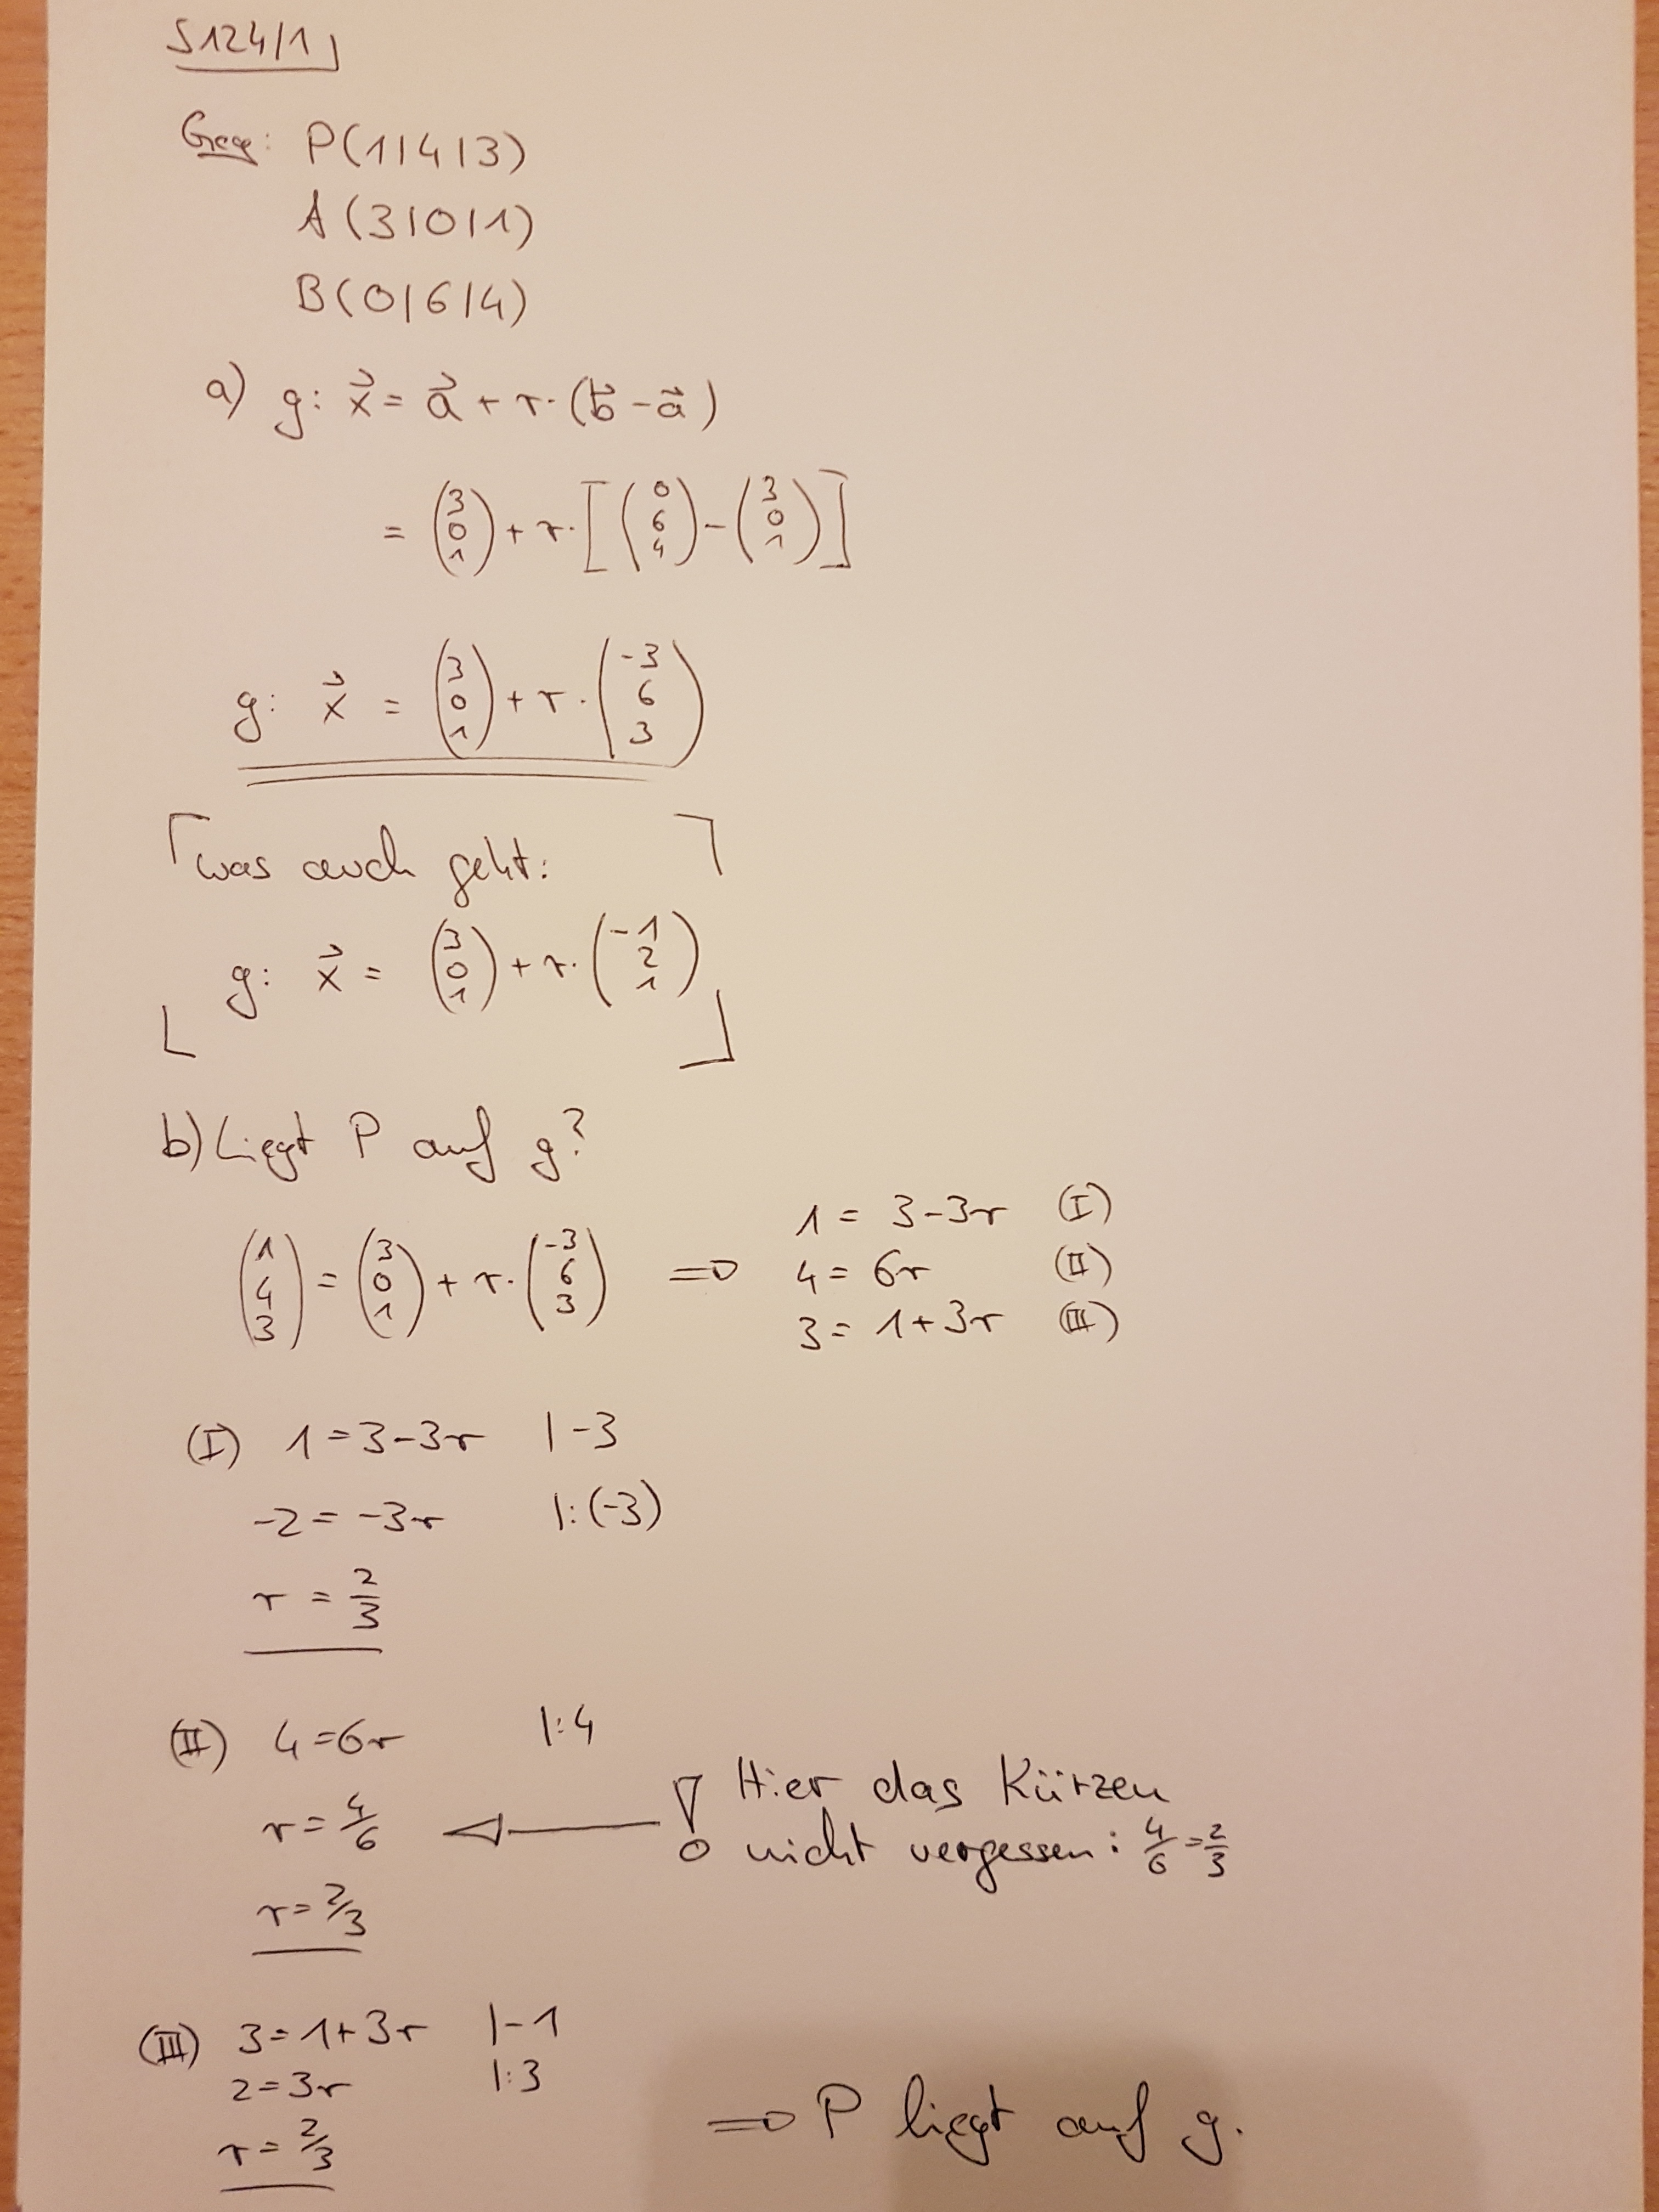 S124/1
Geg: P(1|4|3)
A(3|0|1)
B(0|6|4)
a) g: x⃗ = a⃗ + r·(b⃗ - a⃗)
= (3 0 1) + r·[(0 6 4) - (3 0 1)]
g: x⃗ = (3 0 1) + r·(-3 6 3)
was auch geht:
g: x⃗ = (3 0 1) + r·(-1 2 1)
b) Liegt P auf g?
(1 4 3) = (3 0 1) + r·(-3 6 3) ⇒
1 = 3-3r (I)
4 = 6r (II)
3 = 1+3r (III)
(I) 1=3-3r |-3
-2 = -3r |:(-3)
r = 2/3
(II) 4=6r |:4
r = 4/6 ← ! Hier das Kürzen
nicht vergessen: 4/6 = 2/3
r = 2/3
(III) 3=1+3r |-1
2=3r |:3
r = 2/3
⇒ P liegt auf g.